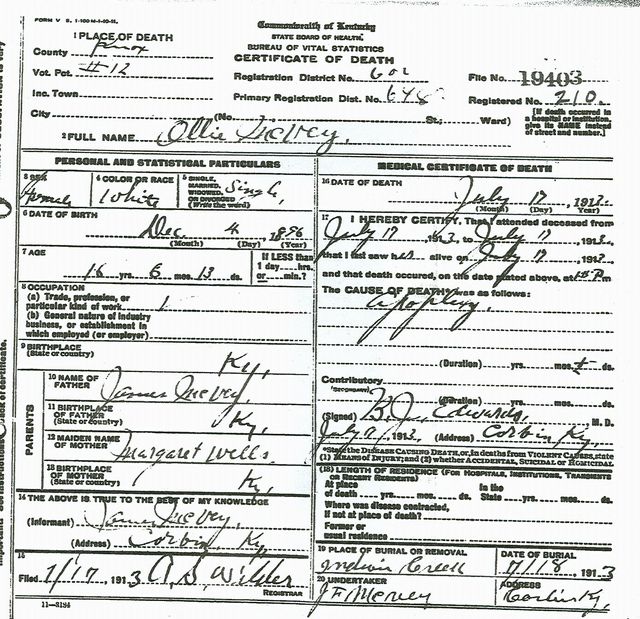 Commonwealth of Kentucky
STATE BOARD OF HEALTH.
BUREAU OF VITAL STATISTICS
CERTIFICATE OF DEATH
1 PLACE OF DEATH
County Knox
Vot. Pct. #12
Inc. Town
City (No. St.; Ward)
Registration District No. 602
Primary Registration Dist. No. 648
File No. 19403
Registered No. 210.
[If death occurred in a hospital or institution, give its NAME instead of street and number.]
2 FULL NAME Ollie McVey.
PERSONAL AND STATISTICAL PARTICULARS
3 SEX Female
4 COLOR OR RACE White
5 SINGLE, MARRIED, WIDOWED, OR DIVORCED (Write the word) Single,
6 DATE OF BIRTH
Dec 4, 1896
(Month) (Day) (Year)
7 AGE
16 yrs. 6 mos. 13 ds.
If LESS than 1 day....hrs. or....min.?
8 OCCUPATION
(a) Trade, profession, or
particular kind of work
(b) General nature of industry
business, or establishment in
which employed (or employer)
9 BIRTHPLACE
(State or country) Ky,
PARENTS
10 NAME OF
FATHER James McVey,
11 BIRTHPLACE
OF FATHER
(State or country) Ky,
12 MAIDEN NAME
OF MOTHER Margaret Wells
13 BIRTHPLACE
OF MOTHER
(State or country) Ky,
14 THE ABOVE IS TRUE TO THE BEST OF MY KNOWLEDGE
(Informant) James McVey,
(Address) Corbin Ky,
15
Filed 7/17, 1913 A.S. Wilder
REGISTRAR
11-3184
MEDICAL CERTIFICATE OF DEATH
16 DATE OF DEATH
July 17, 1913.
(Month) (Day) (Year)
17 I HEREBY CERTIFY, That I attended deceased from
July 17 1913, to July 17, 1913.
that I last saw her alive on July 17, 1913.
and that death occured, on the date stated above, at m
The CAUSE OF DEATH was as follows:
apoplexy.
(Duration) yrs. mos. ds.
Contributory
(SECONDARY)
(Duration) yrs. mos. ds.
(Signed) B. J. Edwards, M. D.
July, 1913, (Address) Corbin Ky,
*State the DISEASE CAUSING DEATH, or, in deaths from VIOLENT CAUSES, state
(1) MEANS OF INJURY; and (2) whether ACCIDENTAL, SUICIDAL or HOMICIDAL
(18) LENGTH OF RESIDENCE (FOR HOSPITALS, INSTITUTIONS, TRANSIENTS
OR RECENT RESIDENTS)
At place of death yrs. mos. ds. In the State yrs. mos. ds.
Where was disease contracted,
if not at place of death?
Former or
usual residence
19 PLACE OF BURIAL OR REMOVAL
Indian Creek
DATE OF BURIAL
7/18, 1913
20 UNDERTAKER
J F McVey
ADDRESS
Corbin Ky,